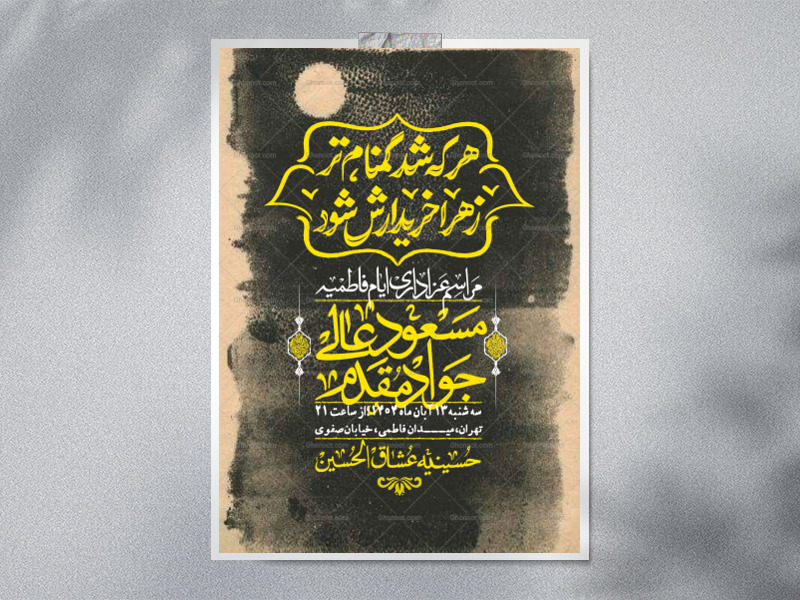 هر که شد گمنام تر
زهرا خریدارش شود
مراسم عزاداری ایام فاطمیه
مسعود عالی
جواد مقدم
سه شنبه ۱۳ آبان ماه ۱۴۰۴ از ساعت ۲۱
تهران، میدان فاطمی، خیابان صفوی
حسینیه عشاق الحسین